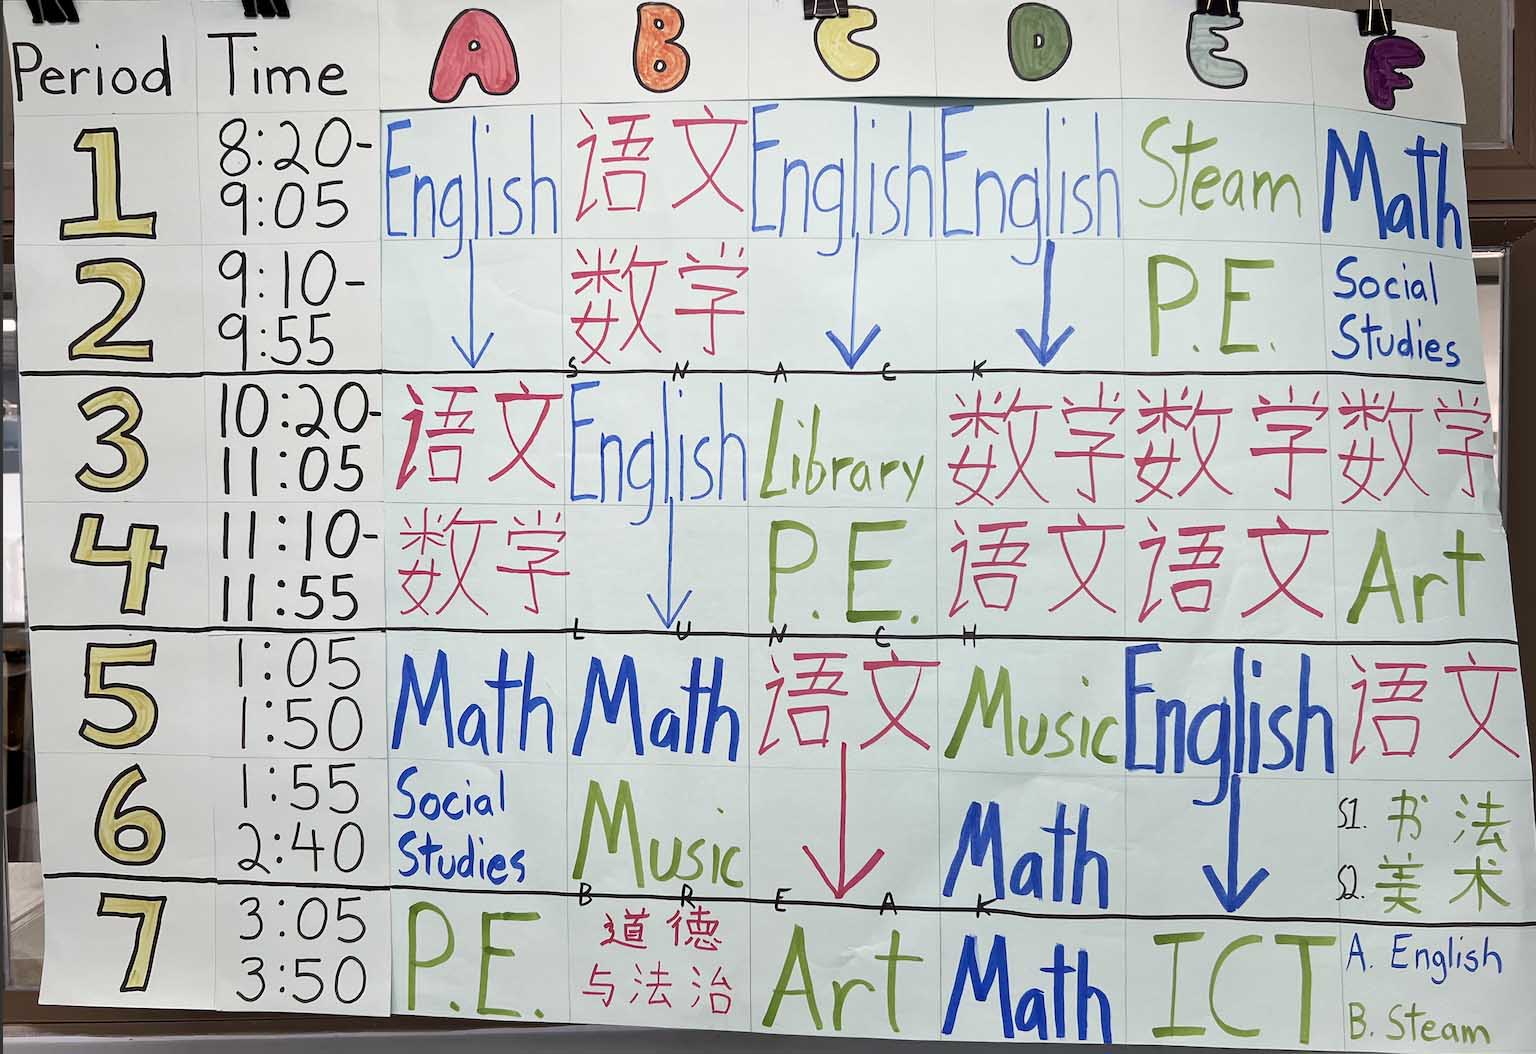 Period Time A B C D E F
1 8:20- English 语文 English English Steam Math
9:05
2 9:10- 数学 P.E. Social
9:55 Studies
S N A C K
3 10:20- 语文 English Library 数学 数学 数学
11:05
4 11:10- 数学 P.E. 语文 语文 Art
11:55
L U N C H
5 1:05 Math Math 语文 Music English 语文
1:50
6 1:55 Social Music Math S1. 书法
2:40 Studies S2. 美术
B R E A K
7 3:05 P.E. 道德 Art Math ICT A. English
3:50 与法治 B. Steam